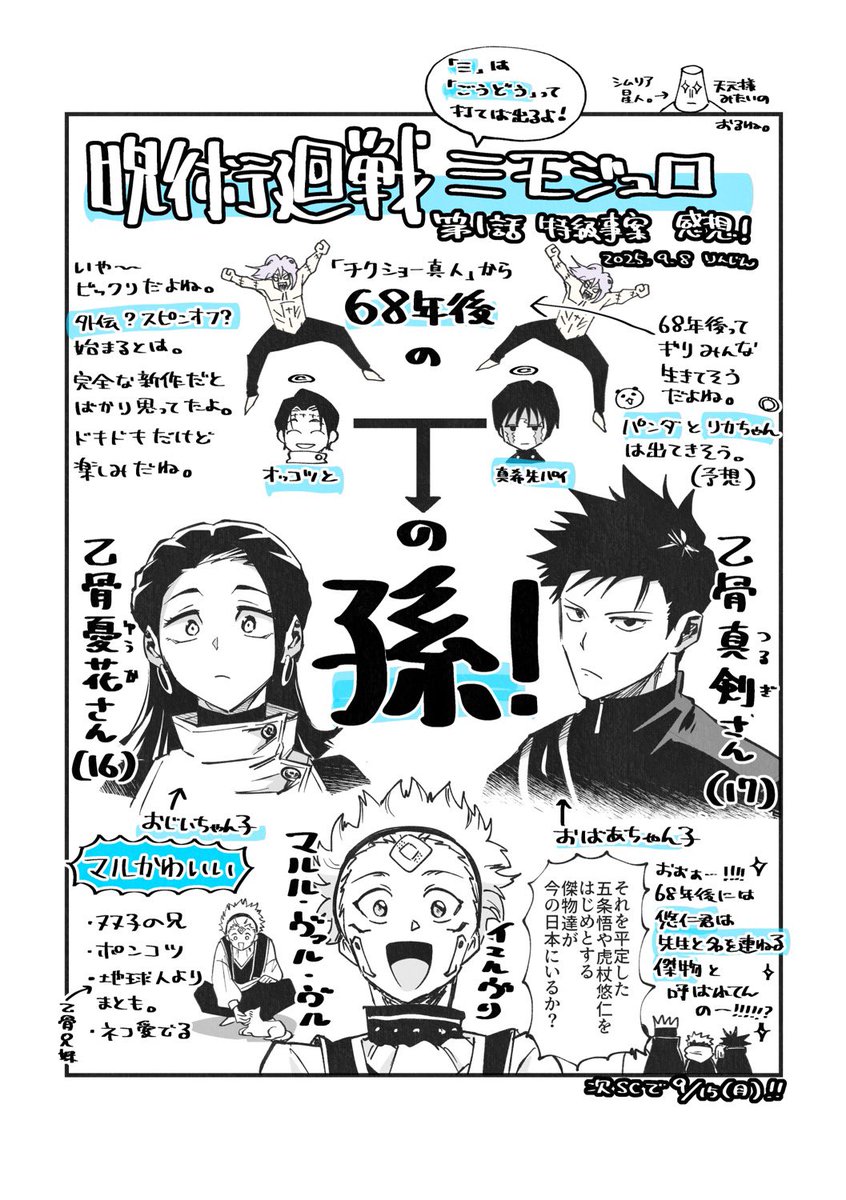 「三」は
「ごうどう」って
打てば出るよ！
シムリア
星人。→
天元様
みたいの
おるね。
呪術廻戦 ≡ モジュロ
第1話 特級事案 感想！
2025.9.8 りんじん
いや〜
ビックリだよね。
外伝？スピンオフ？
始まるとは。
完全な新作だと
ばかり思ってたよ。
ドキドキだけど
楽しみだね。
「チクショー真人」から
68年後
の
68年後って
ギリみんな
生きてそう
だよね。
パンダとリカちゃん
は出てきそう。
(予想)
オッコツと
真希生パイ
の
孫！
乙骨憂花さん(16)
ゆうか
↑
おじいちゃん子
乙骨真剣さん(17)
つるぎ
↑
おばあちゃん子
マルかわいい
・双子の兄
・ポンコツ
・地球人より
まとも。
・ネコ愛でる
乙骨兄妹
マルル・ヴァル・ヴル
イェルヴリ
それを平定した
五条悟や虎杖悠仁を
はじめとする
傑物達が
今の日本にいるか？
おおぉー!!!!
68年後には
悠仁君は
先生と名を連ねる
傑物と
呼ばれてん
のー!!!!!?
次SCで9/15(月)!!